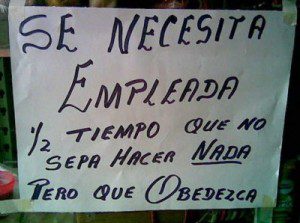 SE NECESITA
EMPLEADA
1/2 TIEMPO QUE NO
SEPA HACER NADA
PERO QUE OBEDEZCA